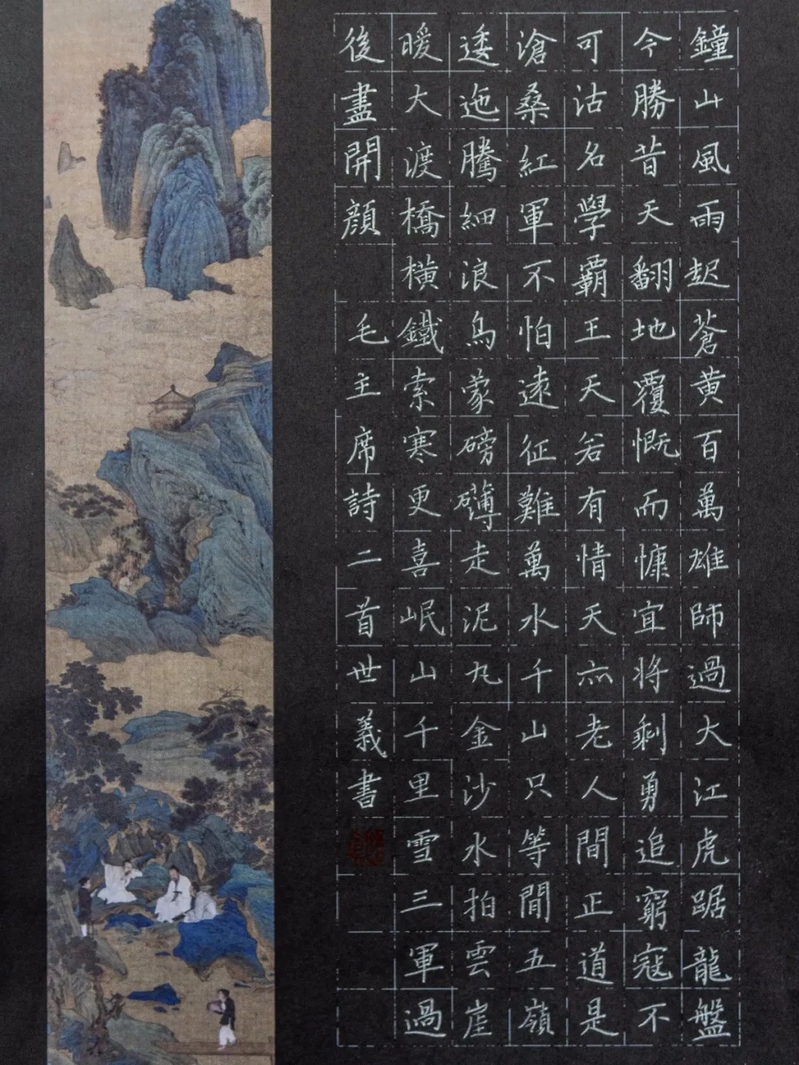 鐘山風雨起蒼黃百萬雄師過大江虎踞龍盤
今勝昔天翻地覆慨而慷宜將剩勇追窮寇不
可沽名學霸王天若有情天亦老人間正道是
滄桑紅軍不怕遠征難萬水千山只等間五嶺
逶迤騰細浪烏蒙磅礴走泥丸金沙水拍雲崖
暖大渡橋橫鐵索寒更喜岷山千里雪三軍過
後盡開顏 毛主席詩二首世義書